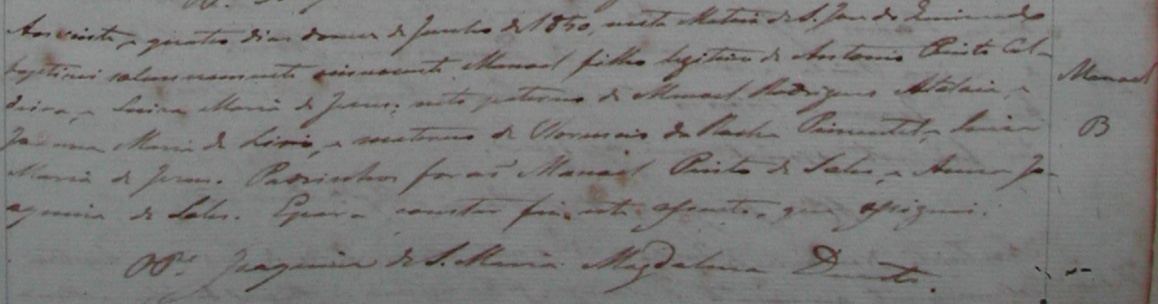 Aos vinte, e quatro dias do mez de Junho de 1850, nesta Matriz de S. Joze do
baptizei solemnemente o innocente Manoel filho legitimo de Antonio Pinto Cal-
deira, e Luiza Maria de Jesus; neto paterno de Manoel Rodrigues Atalaia, e
Joanna Maria de, e materno de da Rocha Pimentel, e Luiza
Maria de Jesus. Padrinhos foraõ Manoel Pinto de Sales, e Anna Jo-
aquina de Sales. Epara constar fiz este assento, que assignei.
Joaquim de S. Maria Magdalena Duarte.
Manoel
B